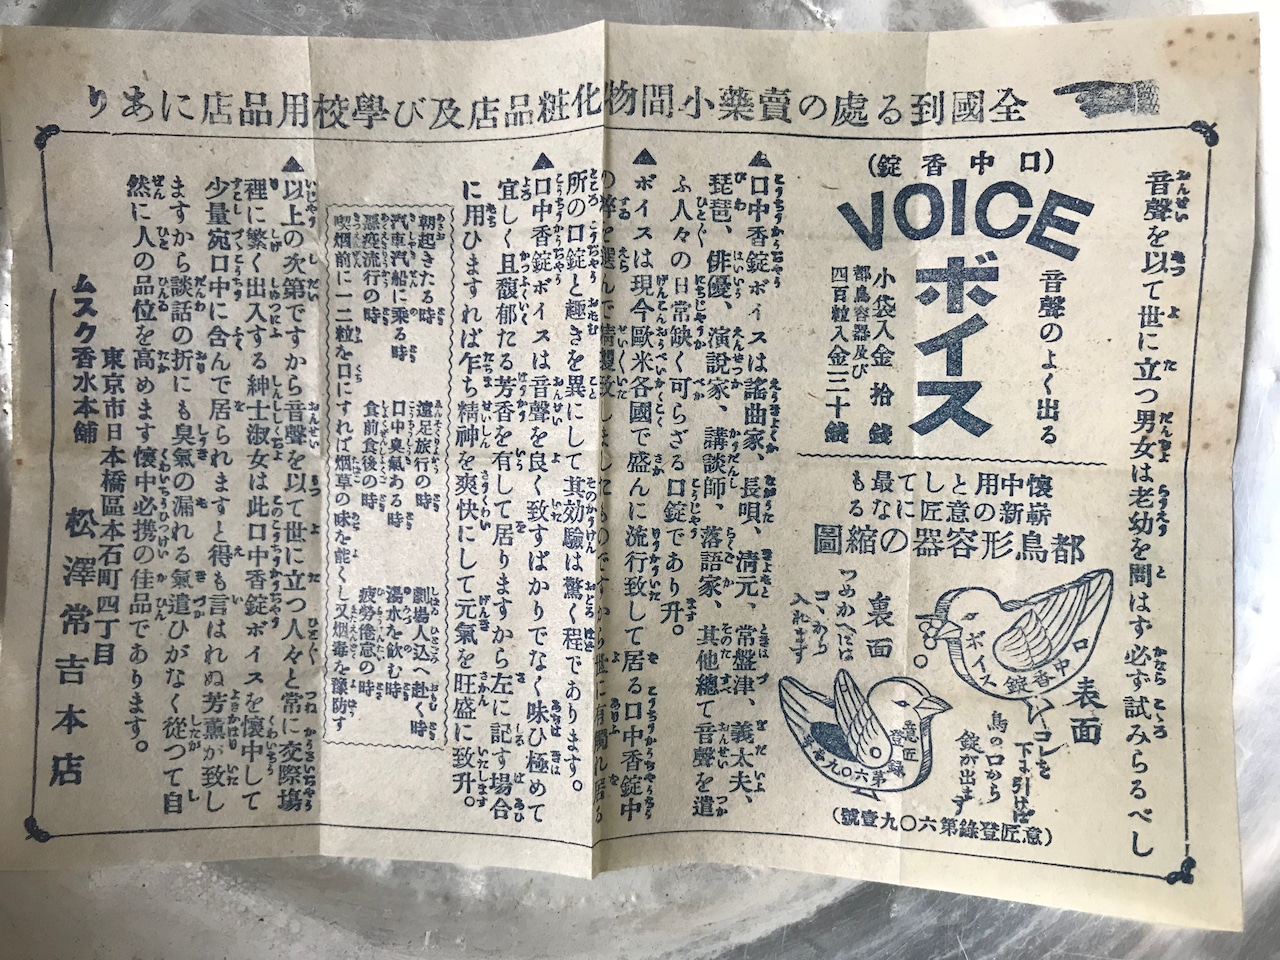 全國到る處の賣藥小間物化粧品店及び學校用品店にあり
音聲を以て世に立つ男女は老幼を問はず必ず試みらるべし
(口中香錠)
VOICE
音聲のよく出る
ボイス
小袋入金拾錢
都鳥容器及び
四百粒入金三十錢
懷中用として最も
嶄新の意匠になる
都鳥形容器の縮圖
表面
口中香錠
ボイス
コレを
下に引けば
鳥の口から
錠が出ます
裏面
つめかへは
コヽから
入れます
意匠登録
第六〇九壹號
(意匠登錄第六〇九壹號)
▲口中香錠ボイスは謠曲家、長唄、清元、常盤津、義太夫、
琵琶、俳優、演說家、講談師、落語家、其他總て音聲を遣
ふ人々の日常缺く可らざる口錠であり升。
▲ボイスは現今歐米各國で盛んに流行致して居る口中香錠中
の粹を選んで精製致しましたものですから世に有觸れ居る
所の口錠と趣きを異にして其効驗は驚く程であります。
▲口中香錠ボイスは音聲を良く致すばかりでなく味ひ極めて
宜しく且馥郁たる芳香を有して居りますから左に記す場合
に用ひますれば乍ち精神を爽快にして元氣を旺盛に致升。
朝起きたる時 遠足旅行の時 劇場人込へ赴く時
汽車汽船に乘る時 口中臭氣ある時 湯水を飲む時
惡疫流行の時 食前食後の時 疲勞倦怠の時
喫烟前に一二粒を口にすれば烟草の味を能くし又烟毒を豫防す
▲以上の次第ですから音聲を以て世に立つ人々と常に交際塲
裡に繁く出入する紳士淑女は此口中香錠ボイスを懷中して
少量宛口中に含んで居られますと得も言はれぬ芳薰が致し
ますから談話の折にも臭氣の漏れる氣遣ひがなく從つて自
然に人の品位を高めます懷中必携の佳品であります。
東京市日本橋區本石町四丁目
ムスク香水本舖 松澤常吉本店